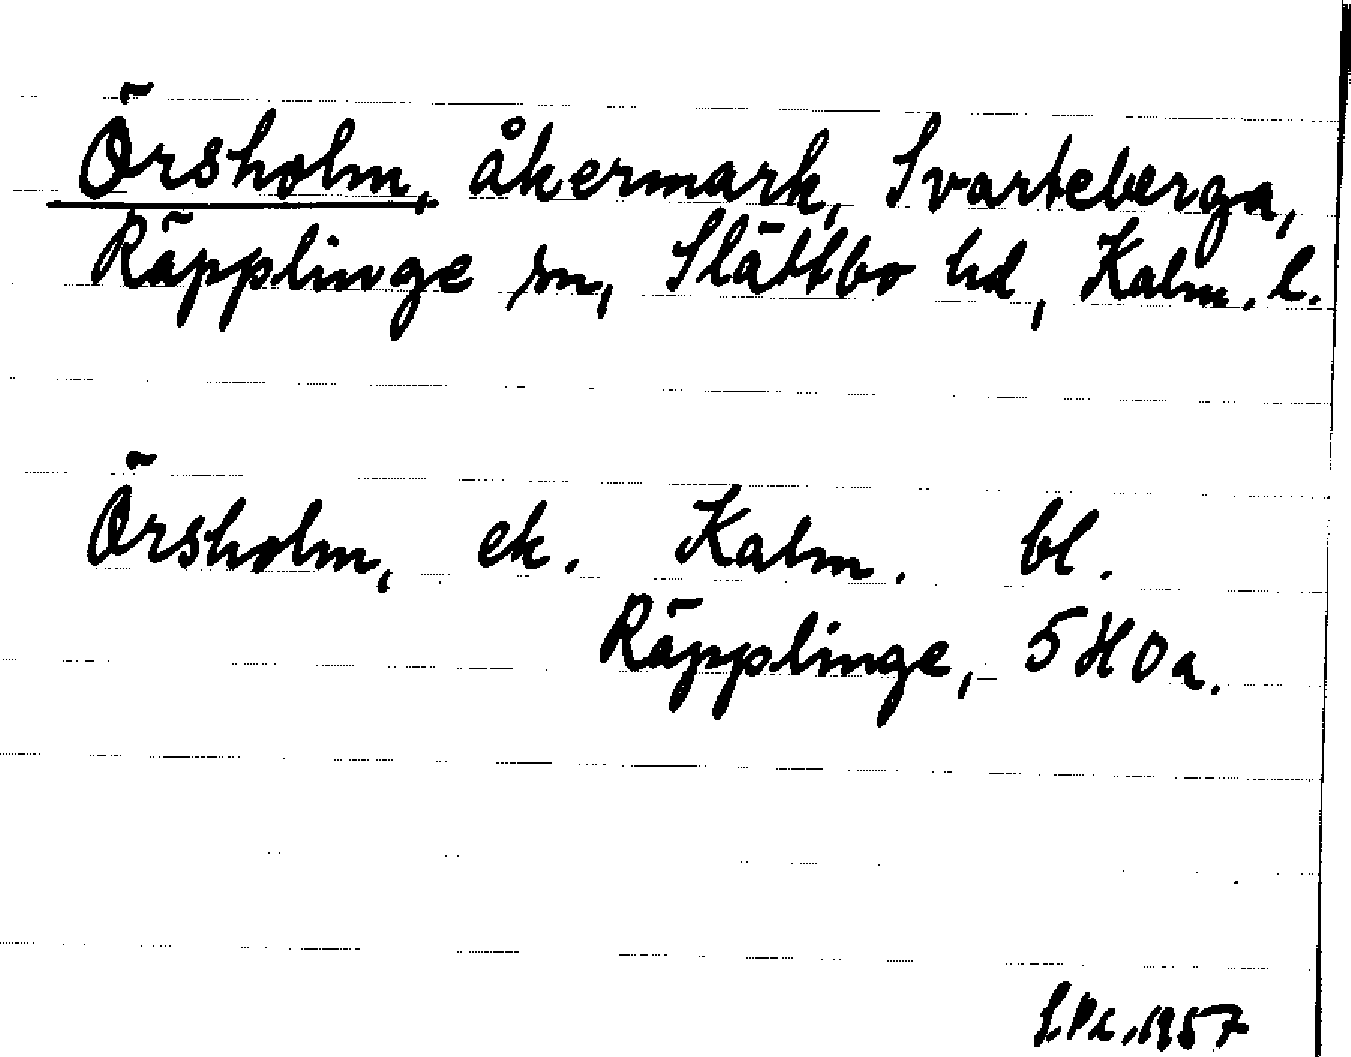 Örsholm, åkermark, Svarteberga,
Räpplinge sn, Slättbo hd, Kalm. l.
Örsholm, ek. Kalm. bl.
Räpplinge, 5 H 0 a.
1957